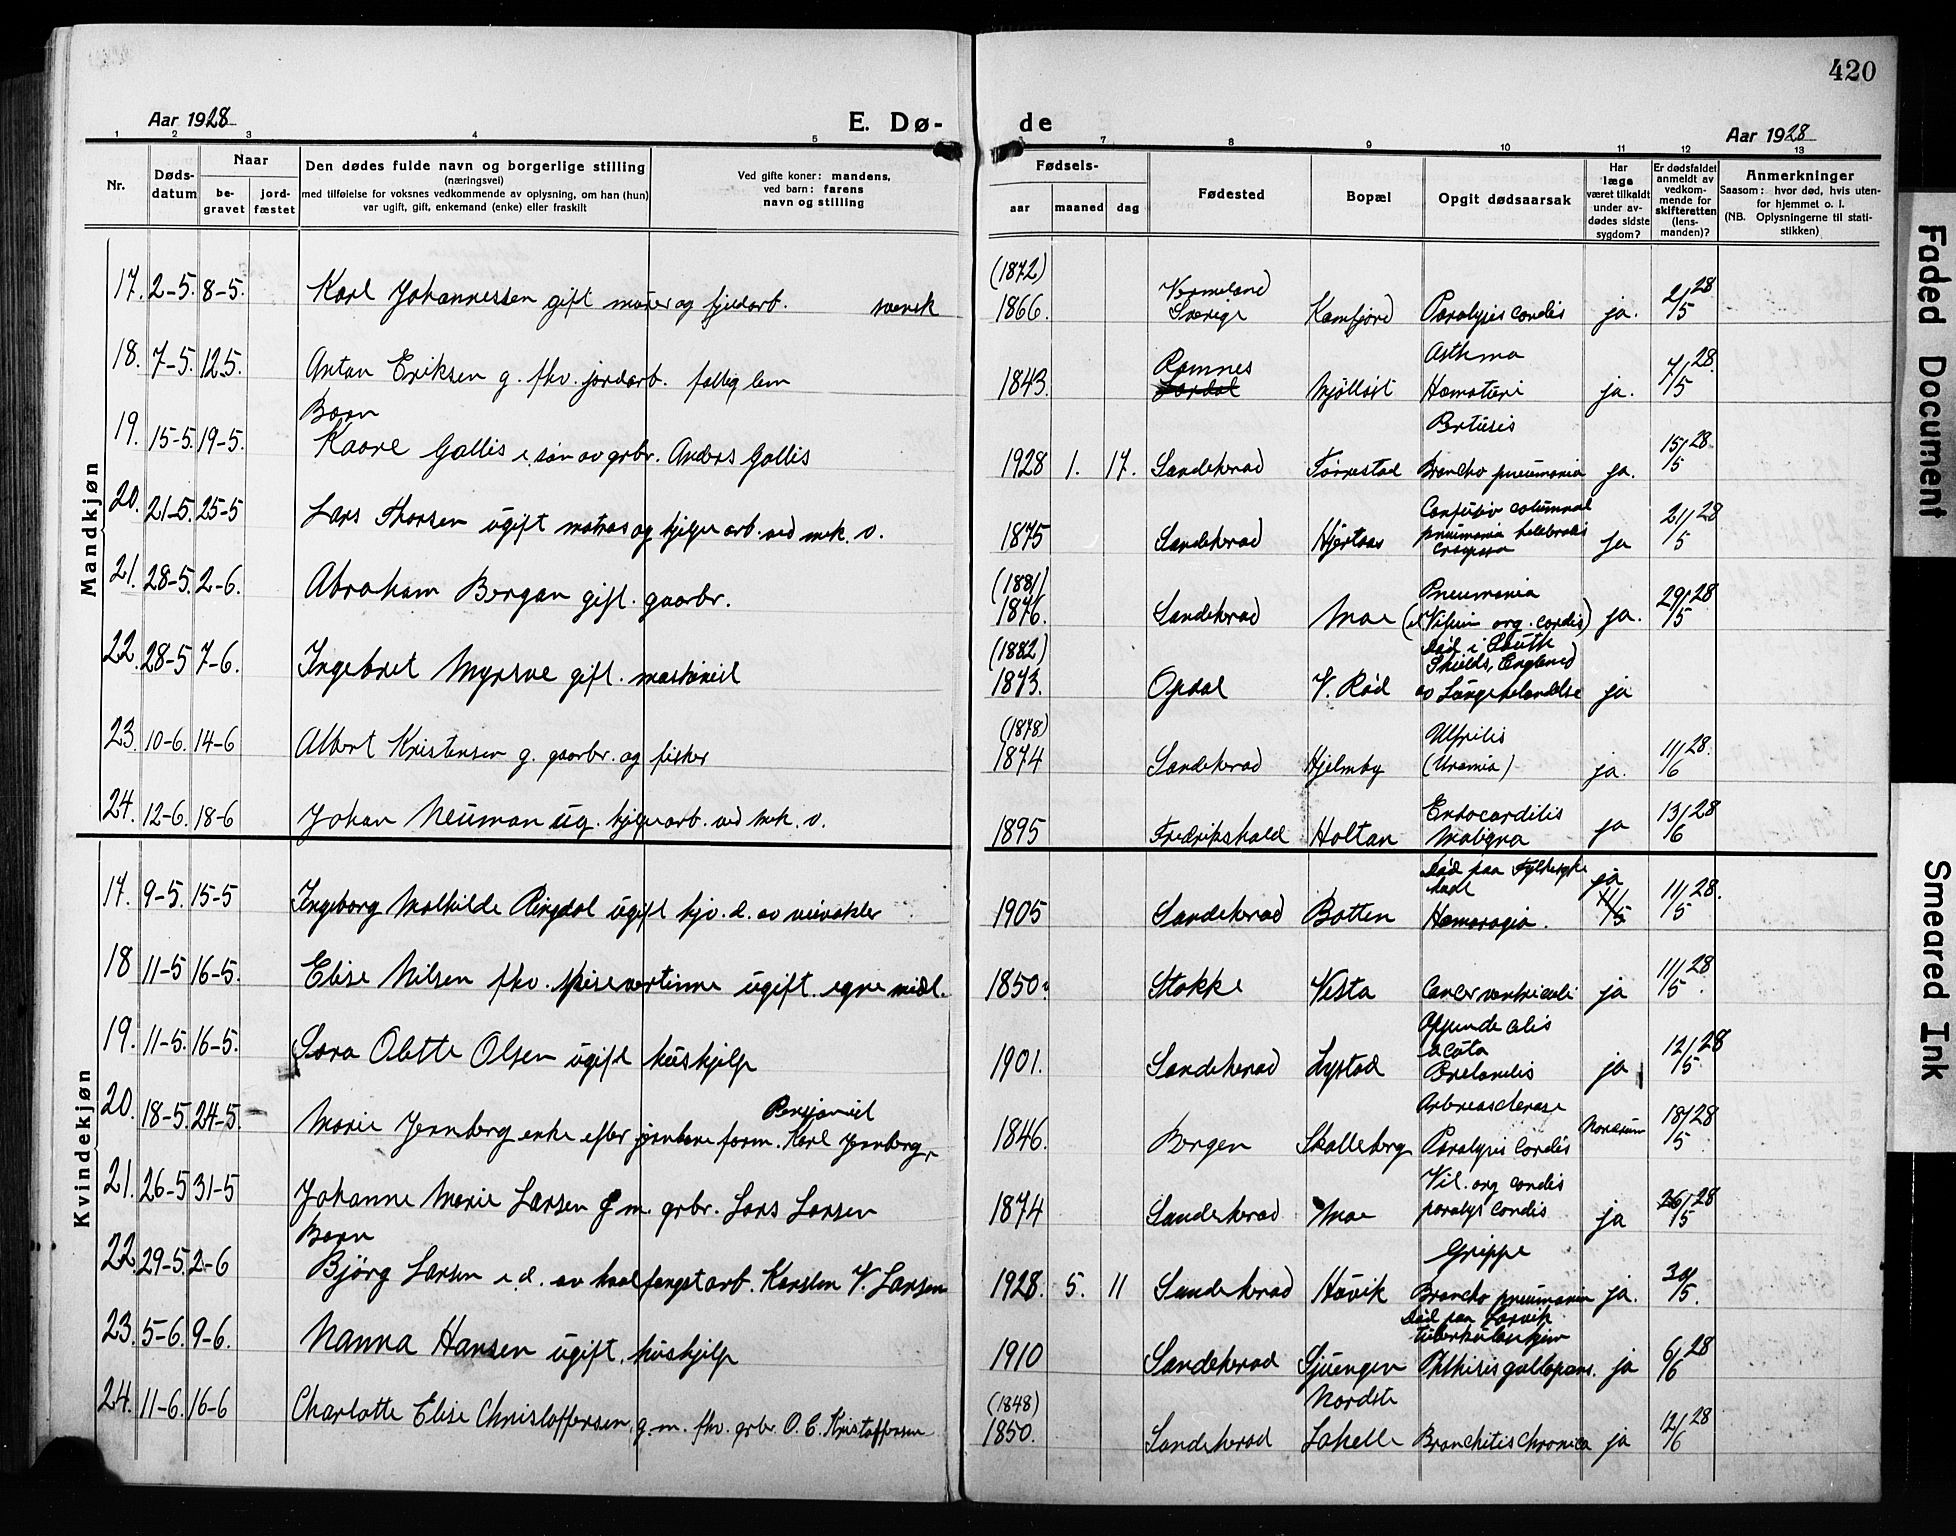 420
Aar 1928
E. Dø-
de
Aar 1928
1 2 3 4 5 7 8 9 10 11 12 13
Nr.
Døds-
datum
Naar
be-
gravet
jord-
fæstet
Den dødes fulde navn og borgerlige stilling
(næringsvei)
med tilføielse for voksnes vedkommende av oplysning, om han (hun)
var ugift, gift, enkemand (enke) eller fraskilt
Ved gifte koner: mandens,
ved barn: farens
navn og stilling
Fødsels-
aar
maaned
dag
Fødested
Bopæl
Opgit dødsaarsak
Har
læge
været tilkaldt
under av-
dødes sidste
sygdom?
Er dødsfaldet
anmeldt av
vedkom-
mende for
skifteretten
(lens-
manden)?
Anmerkninger
Saasom: hvor død, hvis uten-
for hjemmet o. l.
(NB. Oplysningerne til stati-
stikken)
Mandkjøn
17. 2-5. 8-5. Karl Johannessen gift murer og fjeldarb. svensk (1872) 1866. Vermeland Sverige Kamfjord Paralysis cordis ja. 2/5 28
18. 7-5. 12.5. Anton Eriksen g. fhv. jordarb. fattig lem 1843. Ramnes Mjöllöst Asthma ja. 7/5 28.
Barn
19. 15-5. 19-5. Kaare Gallis e. søn av grbr. Anders Gallis 1928 1. 17. Sandeherad Forrestad Pertusis Broncho pneumonia ja. 15/5 28
20. 21-5. 25-5 Lars Thorsen ugift matros og hjelpearb. ved mek. v. 1875 Sandeherad Hjertaas pneumonia ja 21/5 28
21. 28-5. 2-6. Abraham Bergan gift. gaarbr. (1881) 1876. Sandeherad Moe Pneumonia (et Vitium org. cordis) ja. 29/5 28
22. 28-5 7-6. Ingebret Myrsve gift. maskinist (1882) 1873. Opdal V. Rød Død i South Shields, England av Lungebetændelse ja
23. 10-6. 14-6 Albert Kristensen g. gaarbr. og fisker (1878) 1874 Sandeherad Hjelmby (Uremia) ja. 11/6 28.
24. 12-6. 18-6 Johan Neuman ug. hjelpearb. ved mek. v. 1895 Fredrikshald Holtan Endocarditis maligna ja 13/6 28
Kvindekjøn
17. 9-5. 15-5 Ingeborg Mathilde Ringdal ugift hjv. d. av veivokter 1905 Sandeherad Botten Død paa Fylkessyke huset Hæmoragia. ja 11/5 11/5 28.
18 11-5 16-5. Elise Nilsen fhv. spisevertinne ugift. egne midl. 1850. Stokke Vesta Cancer ventriculi ja 11/5 28.
19. 11-5. 16-5. Sara Olette Olsen ugift hushjelp 1901. Sandeherad Lystad acuta ja 12/5 28
20. 18-5. 24-5. Marie Jernberg enke efter Pensjonist jernbane form. Karl Jernberg 1846. Bergen Skalleberg Paralysis cordis 18/5 28
21. 26-5 31-5 Johanne Marie Larsen g. m. grbr. Lars Larsen 1874 Sandeherad Moe Vit. org cordis paralys cordis ja 26/5 28
Barn
22. 29-5. 2-6 Bjørg Larsen e. d. av hvalfangstarb. Karsten V. Larsen 1928. 5. 11 Sandeherad Haavik Grippe Broncho pneumonia ja. 30/5.
23. 5-6. 9-6. Nanna Hansen ugift. hushjelp 1910 Sandeherad Sjuengen Død paa Larvik tuberkulosehjem Phthisis gallopans. ja 6/6 28
24. 11-6. 16-6 Charlotte Elise Christoffersen g. m. fhv. grbr. O. C. Kristoffersen (1848) 1850. Sandeherad Nordste Lahelle Bronchitis chronica ja 12/6 28
Faded Document
Smeared Ink